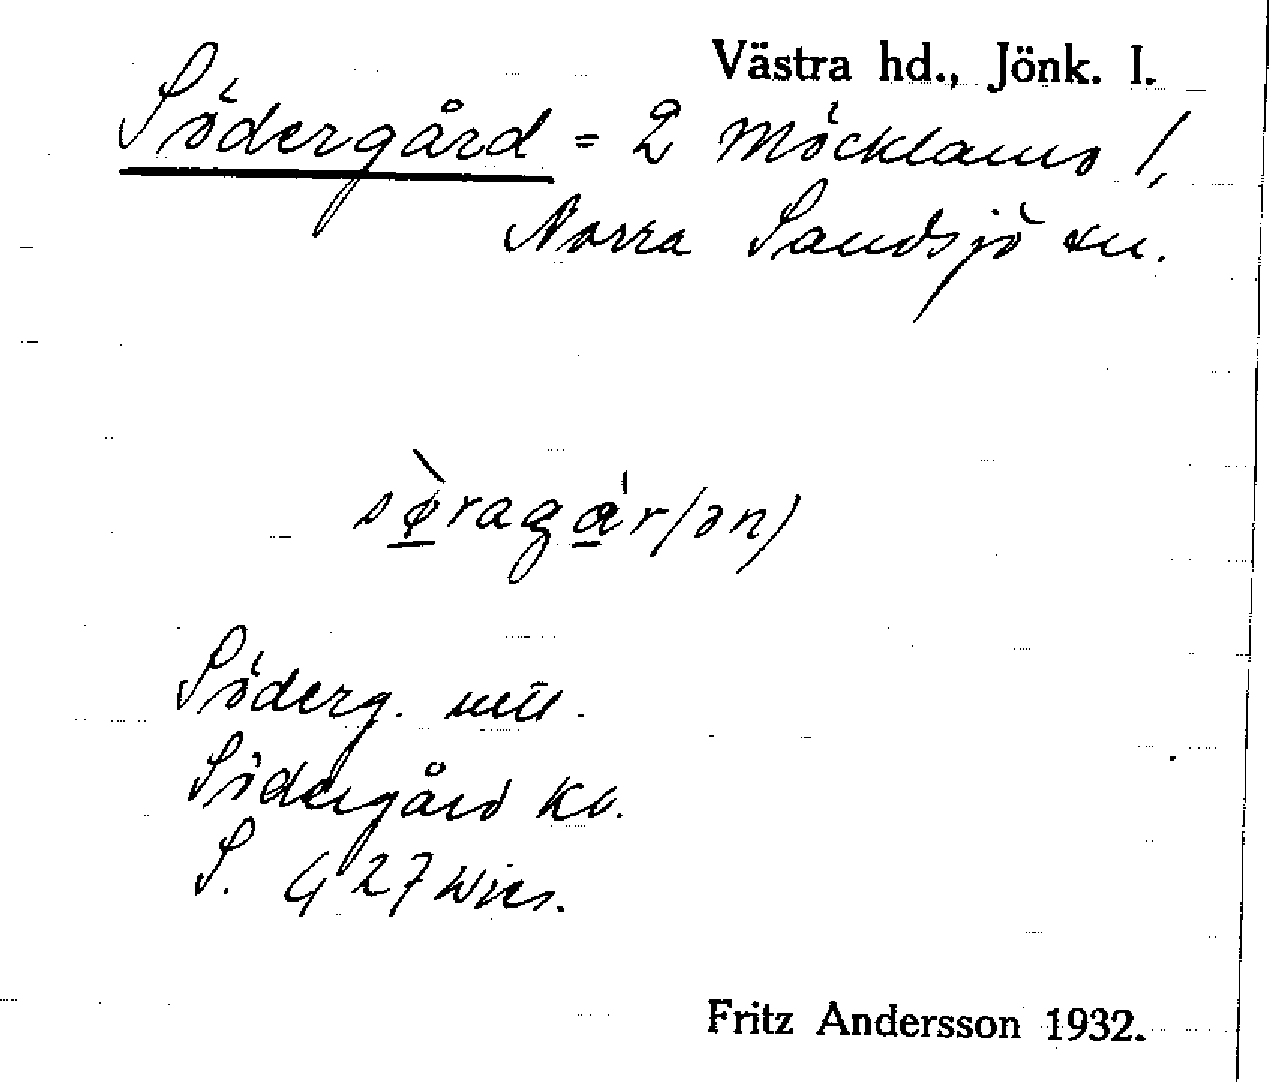 Västra hd., Jönk. l.
Södergård = 2 Möcklamo /,
Norra Sandsjö sn.
sø̀ragár/ən)
Söderg.
Södergård Kv.
S. G 27
Fritz Andersson 1932.